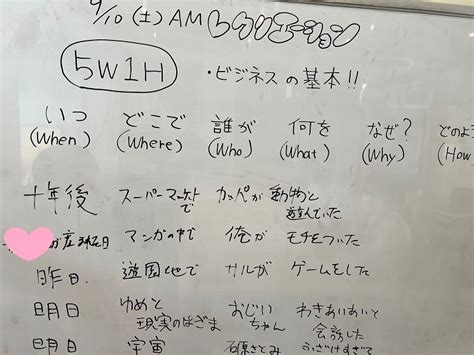 9/10(土)AMレクリエーション
5W1H ・ビジネスの基本!!
いつ どこで 誰が 何を なぜ? どのよ
(When) (Where) (Who) (What) (Why) (How
十年後 スーパーマーケットで カッパが 動物と遊んでいた
マンガの中で 俺が モチをついた
昨日 遊園地で サルが ゲームをした
明日 ゆめと現実のはざま おじいちゃん わきあいあいと会話した
明日 宇宙 石原さとみ ふざけすぎて